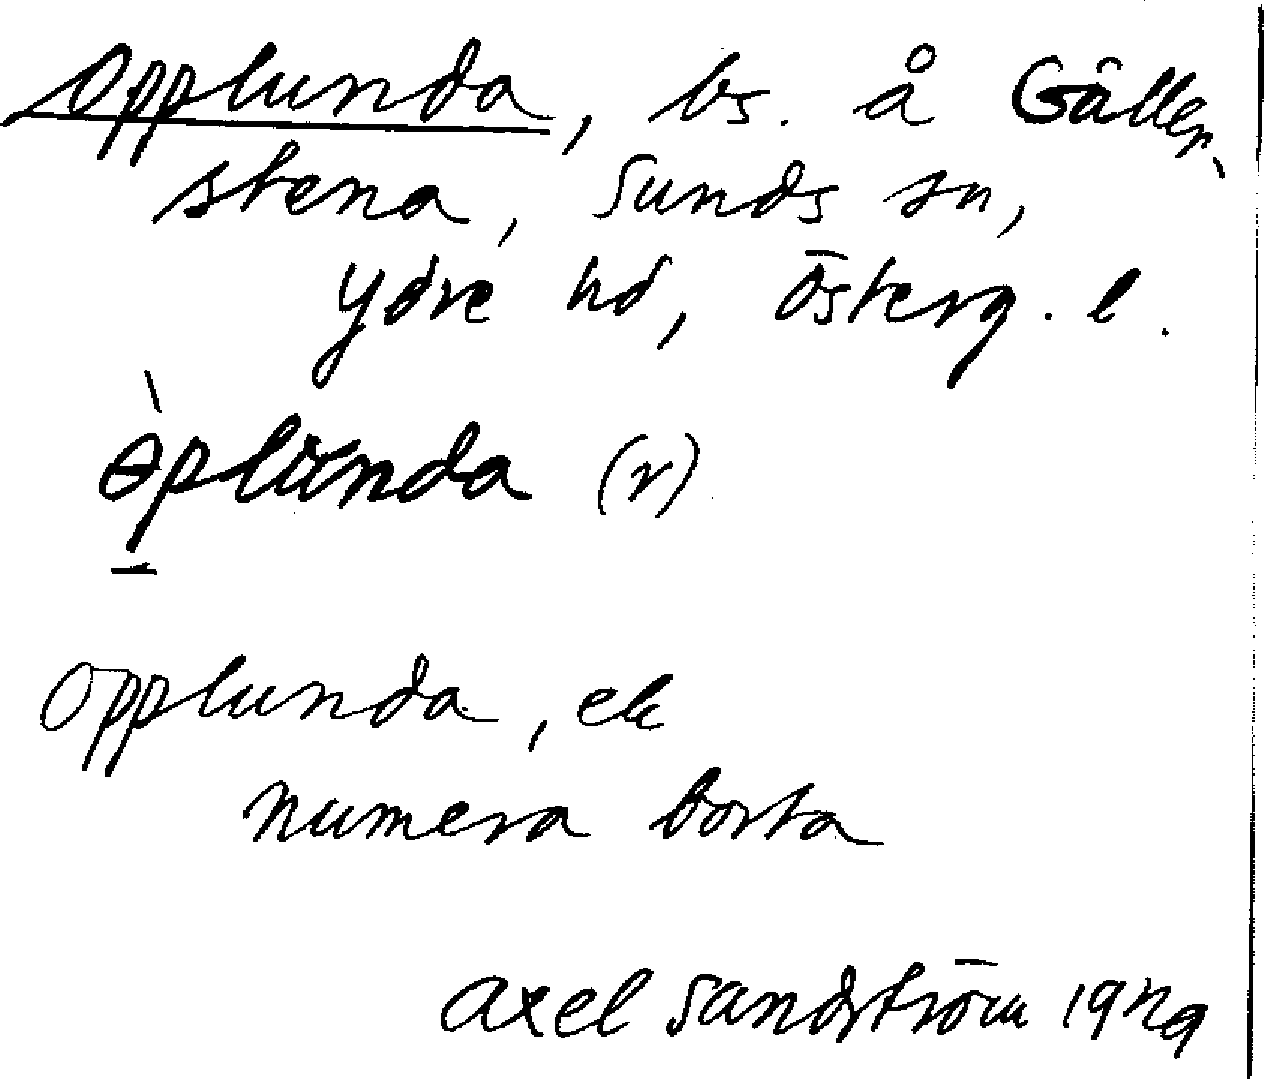 Opplunda, bs. å Gäller-
stena, Sunds sn,
Ydre hd, Österg. l.
ɵ̀plùnda (r)
Opplunda, ek
numera borta
Axel Sandström